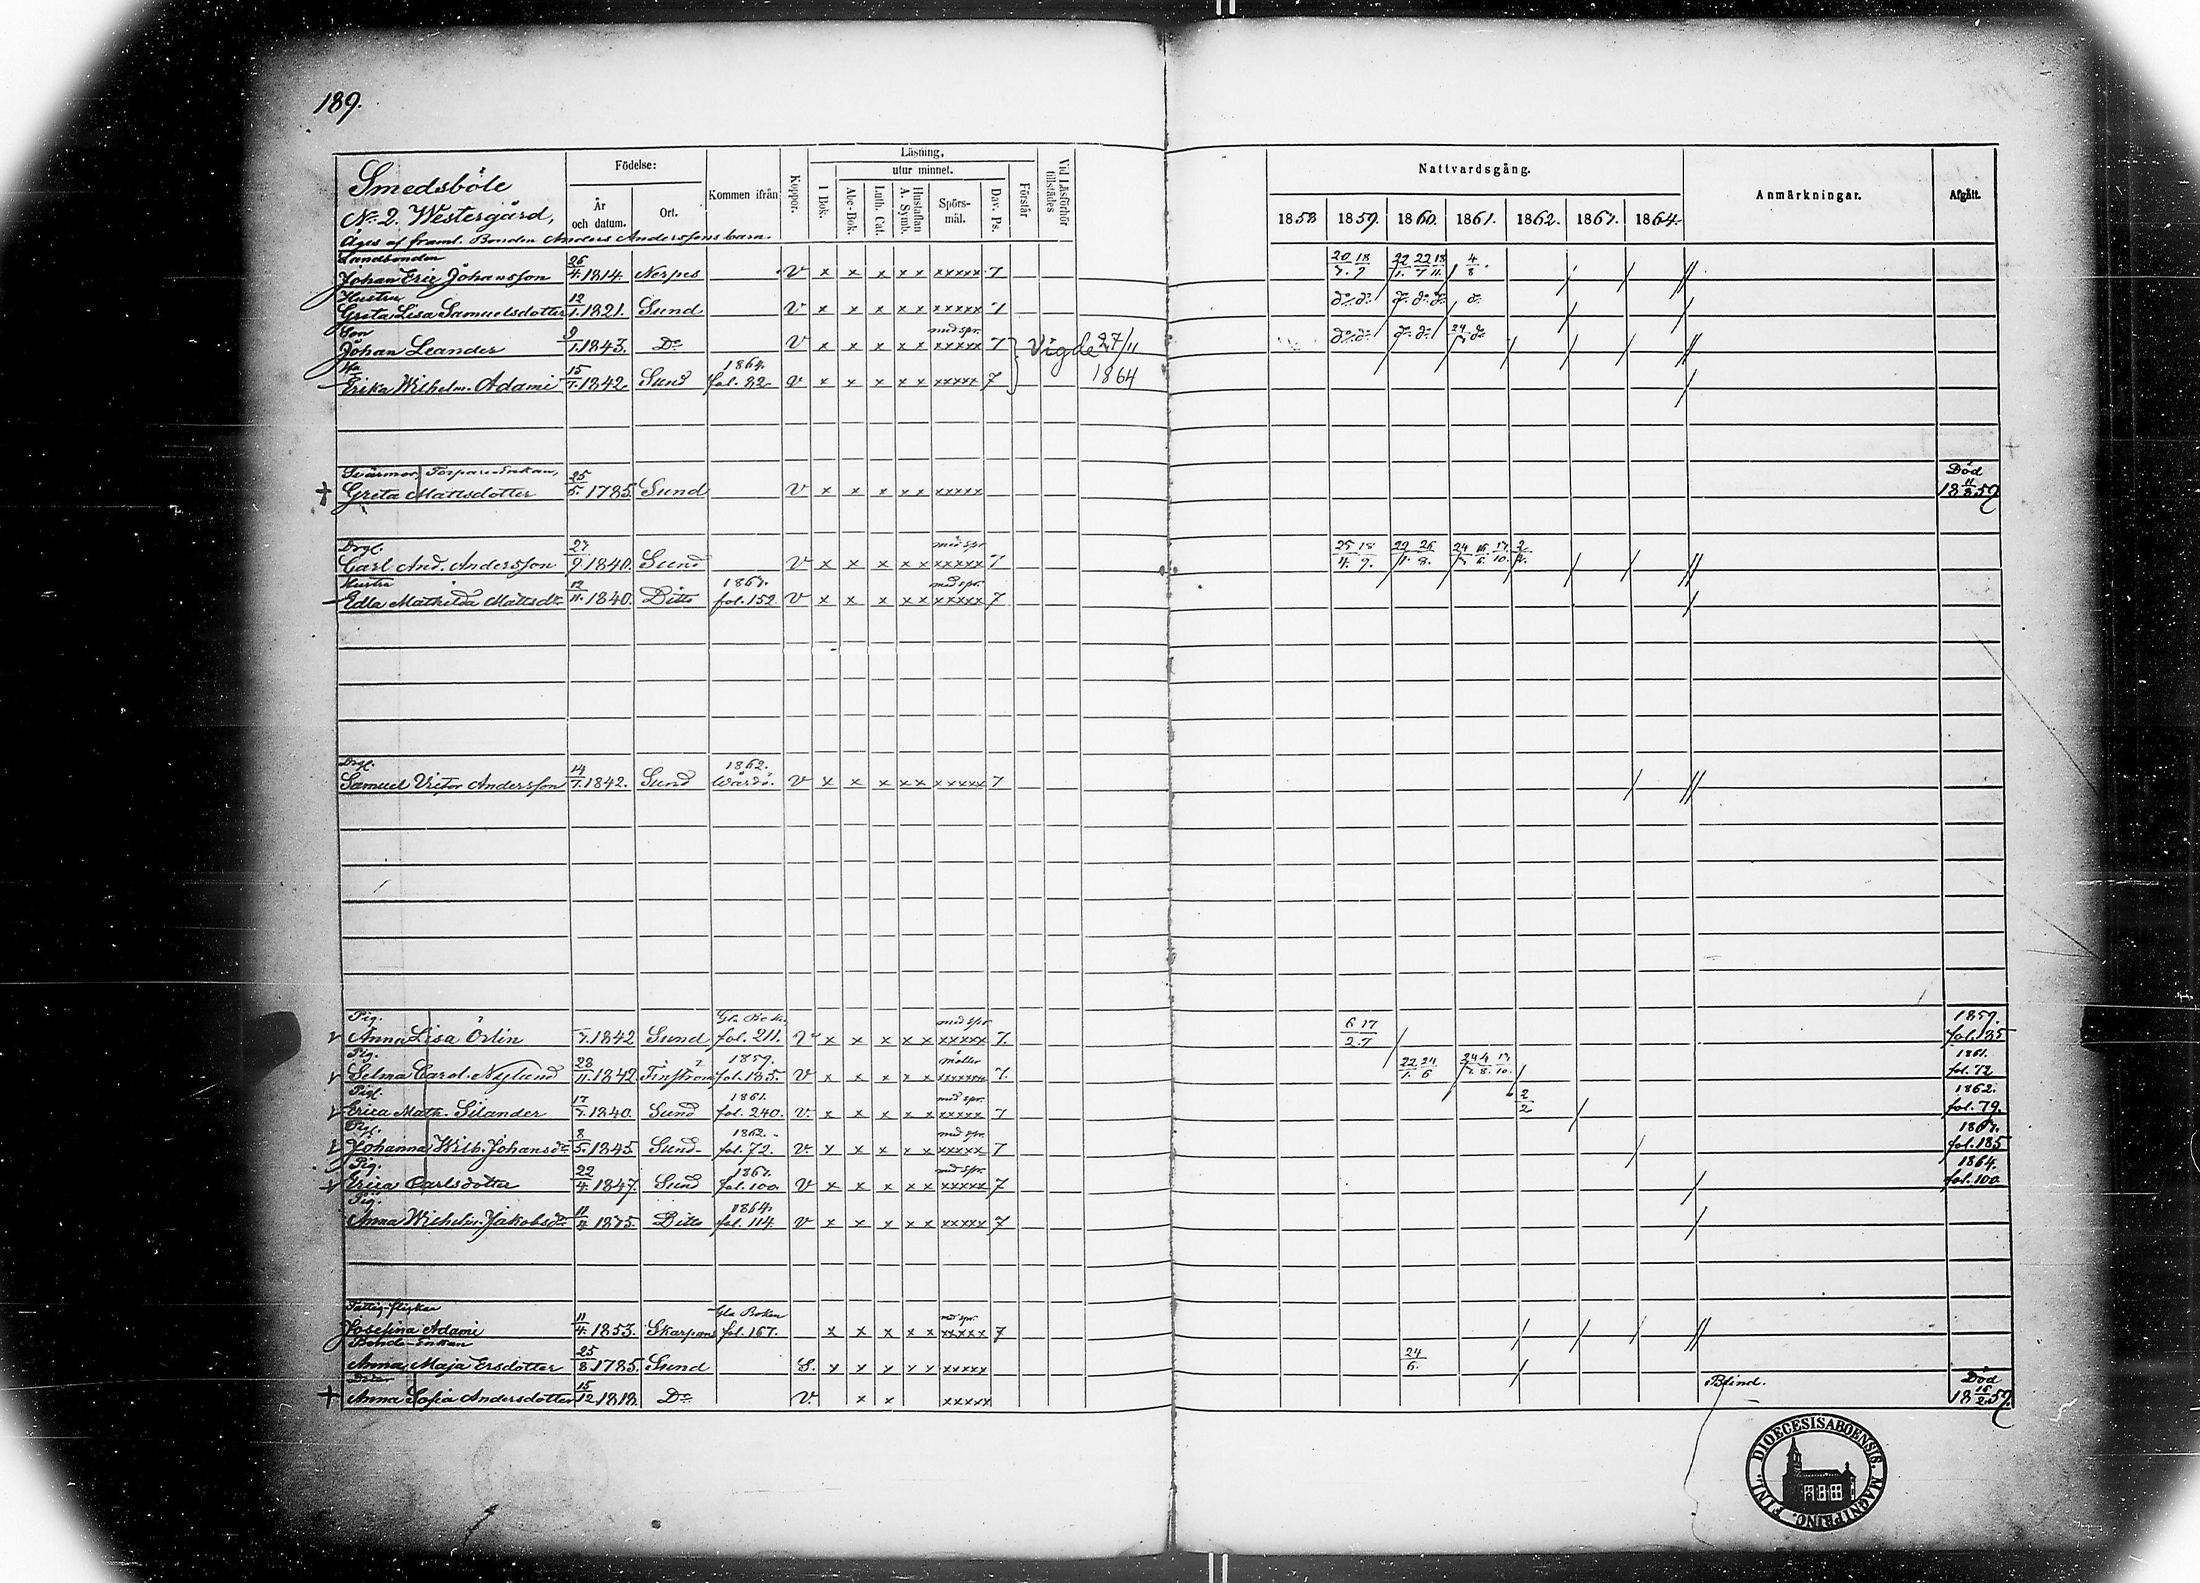 189.
Smedsböle
No 2. Westergård,
Äges af framl. Bonden Anders Anderssons barn.
Födelse:
År och datum.
Ort.
Kommen ifrån
Koppor.
Läsning,
I Bok.
utur minnet.
Abc-Bok.
Luth. Cat.
Hustaflan A. Symb.
Spörs-mål.
Dav. Ps.
Förstår
Vid Läsförhör tillstädes
Nattvardsgång.
1858 1859. 1860. 1861. 1862. 1863. 1864.
Anmärkningar.
Afgått.
Landbonden
Johan Eric Johansson 26/4. 1814. Nerpes V x x x x x xxxxx 7 20/3. 18/9 22/1. 22/7 18/11. 4/8.
Hustru
Greta Lisa Samuelsdotter 12/1. 1821. Sund V x x x x x xxxxx 7 do. do. do. do. do. do.
Son med spr.
Johan Leander 9/1. 1843. Do V x x x x x xxxxx 7 Vigde 27/11 do. do. do. do. 24/3 do
Hu 1864.
Erika Wilhelm. Adami 15/1. 1842. Sund fol. 82. V x x x x x xxxxx 7 1864
Svärmor, Torpare-Enkan, Död
+ Greta Mattsdotter 25/5. 1785. Sund V x x x x x xxxxx 18 11/8 59
Drgl. med spr
Carl And. Andersson 27/9. 1840. Sund V x x x x x xxxxx 7 25/4. 18/9. 22/1. 26/8. 24/3 16/6. 17/10. 2/2.
Hustru 1863. med spr.
Edla Mathilda Mattsdr 12/11. 1840. Ditto fol. 152. V x x x x x xxxxx 7
Drgl. 1862.
Samuel Victor Andersson 14/7. 1842. Sund Wårdö. V x x x x x xxxxx 7
Pig. Gla Boken med spr 1859.
Anna Lisa Örlin 1842 Sund fol. 211. V x x x x x xxxxx 7. 6/2. 17/7 fol. 135
Pig. 1859. 1861.
Selma Carol. Nylund 28/11. 1842. Finström fol. 135. V x x x x x xxxxxx 7. 22/1. 24/6 24/3. 4/8. 13/10. fol. 72
Pig. 1861. med spr. 1862.
Erica Math. Silander 17/7. 1840. Sund fol. 240. V. x x x x x xxxxx 7 2/2 fol. 79.
1862. med spr. 1863.
Johanna Wilh. Johansdr 8/5. 1845 Sund fol. 72. V. x x x x x xxxxx 7 fol. 135
Pig. 1863. med spr. 1864.
Erica Carlsdotter 22/4. 1847. Sund fol. 100. V x x x x x xxxxx 7 fol. 100.
Pig. 1864.
Anna Wilhelm. Jakobsdr 1875. Ditto fol. 114. V x x x x x xxxxx 7
Fattig-flickan Gla Boken med spr.
Josefina Adami 11/4. 1853. Skarpans fol. 167. x x x x x xxxxx 7
Bonde-Enkan
Anna Maja Ersdotter 25/8. 1785. Sund S. x x x x x xxxxx 24/6.
Dotter Blind. Död
+ Anna Sofia Andersdotter 15/12. 1818. Do V. x x xxxxx 18 59.
DIOECESIS ABOENSIS. MAGNI PRINC. FINL.